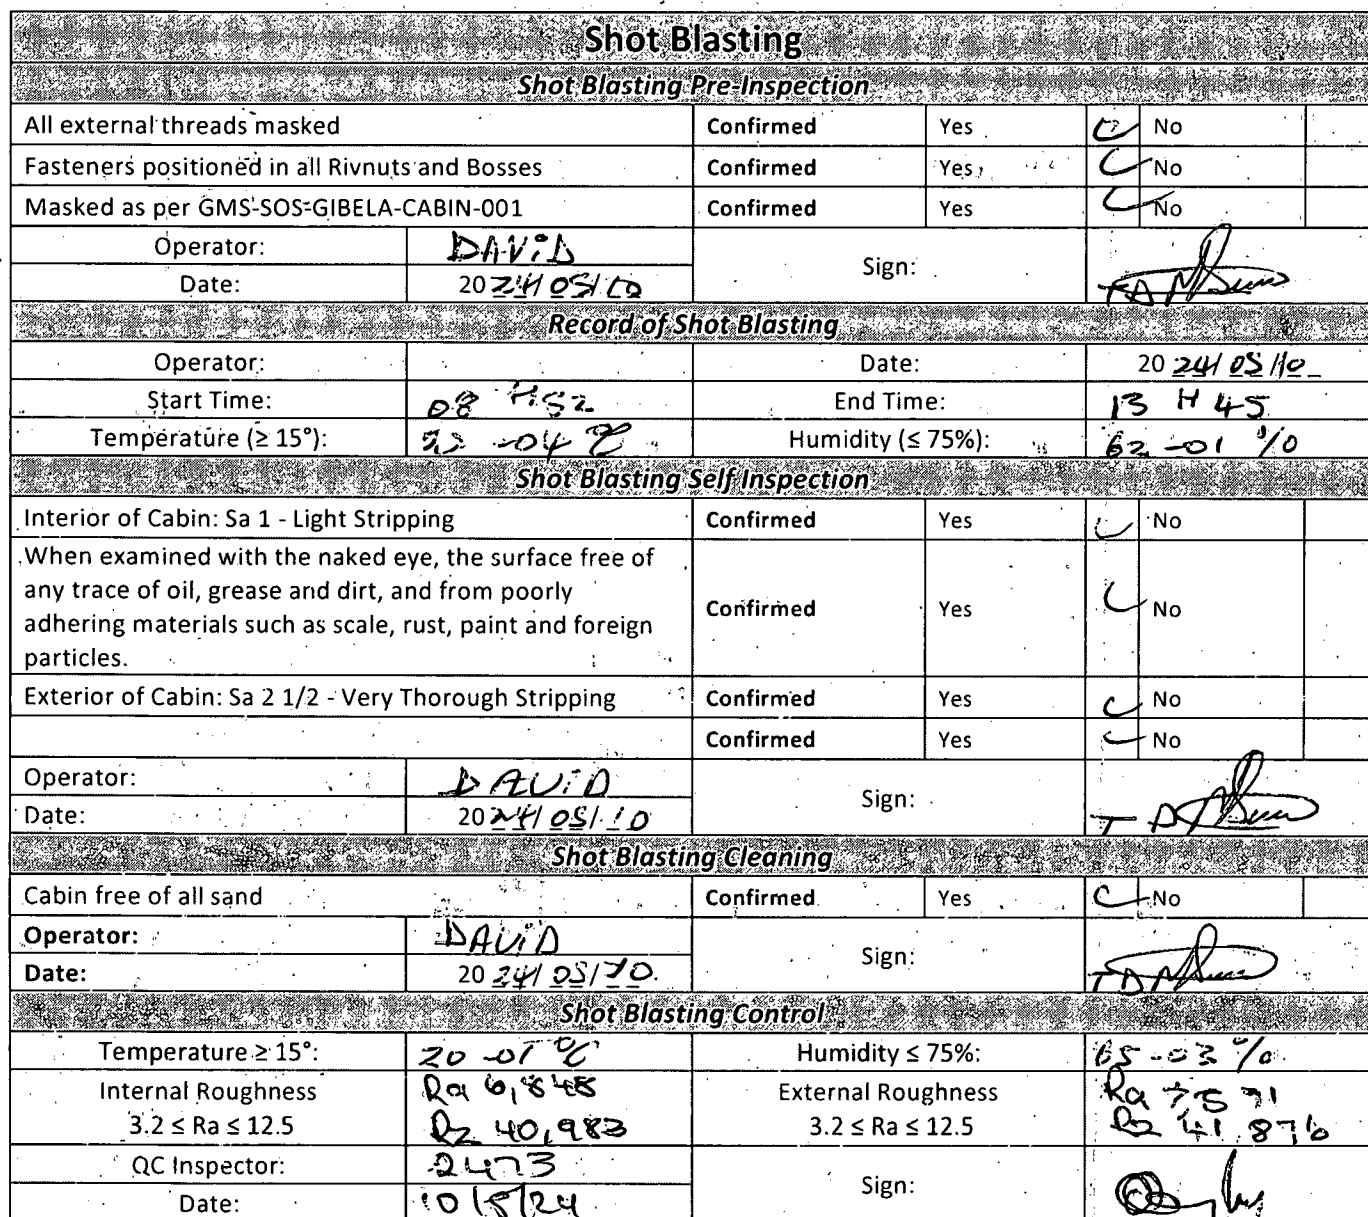 Shot Blasting
Shot Blasting Pre-Inspection
All external threads masked Confirmed Yes No
Fasteners positioned in all Rivnuts and Bosses Confirmed Yes No
Masked as per GMS-SOS-GIBELA-CABIN-001 Confirmed Yes No
Operator: DAViD Sign:
Date: 2024/05/10
Record of Shot Blasting
Operator: Date: 2024/05/10
Start Time: 08 H52 End Time: 13 H 45
Temperature (≥ 15°): -04 °C Humidity (≤ 75%): 62 -01 %
Shot Blasting Self Inspection
Interior of Cabin: Sa 1 - Light Stripping Confirmed Yes No
When examined with the naked eye, the surface free of
any trace of oil, grease and dirt, and from poorly
adhering materials such as scale, rust, paint and foreign
particles.
Confirmed Yes No
Exterior of Cabin: Sa 2 1/2 - Very Thorough Stripping Confirmed Yes No
Confirmed Yes No
Operator: DAViD Sign:
Date: 2024/05/10
Shot Blasting Cleaning
Cabin free of all sand Confirmed Yes No
Operator: DAViD Sign:
Date: 2024/05/10
Shot Blasting Control
Temperature ≥ 15°: 20 -01 °C Humidity ≤ 75%: 65-03 %
Internal Roughness Ra 6,848 External Roughness Ra 7,571
3.2 ≤ Ra ≤ 12.5 Rz 40,983 3.2 ≤ Ra ≤ 12.5 Rz 41,876
QC Inspector: 2473 Sign:
Date: 10/5/24